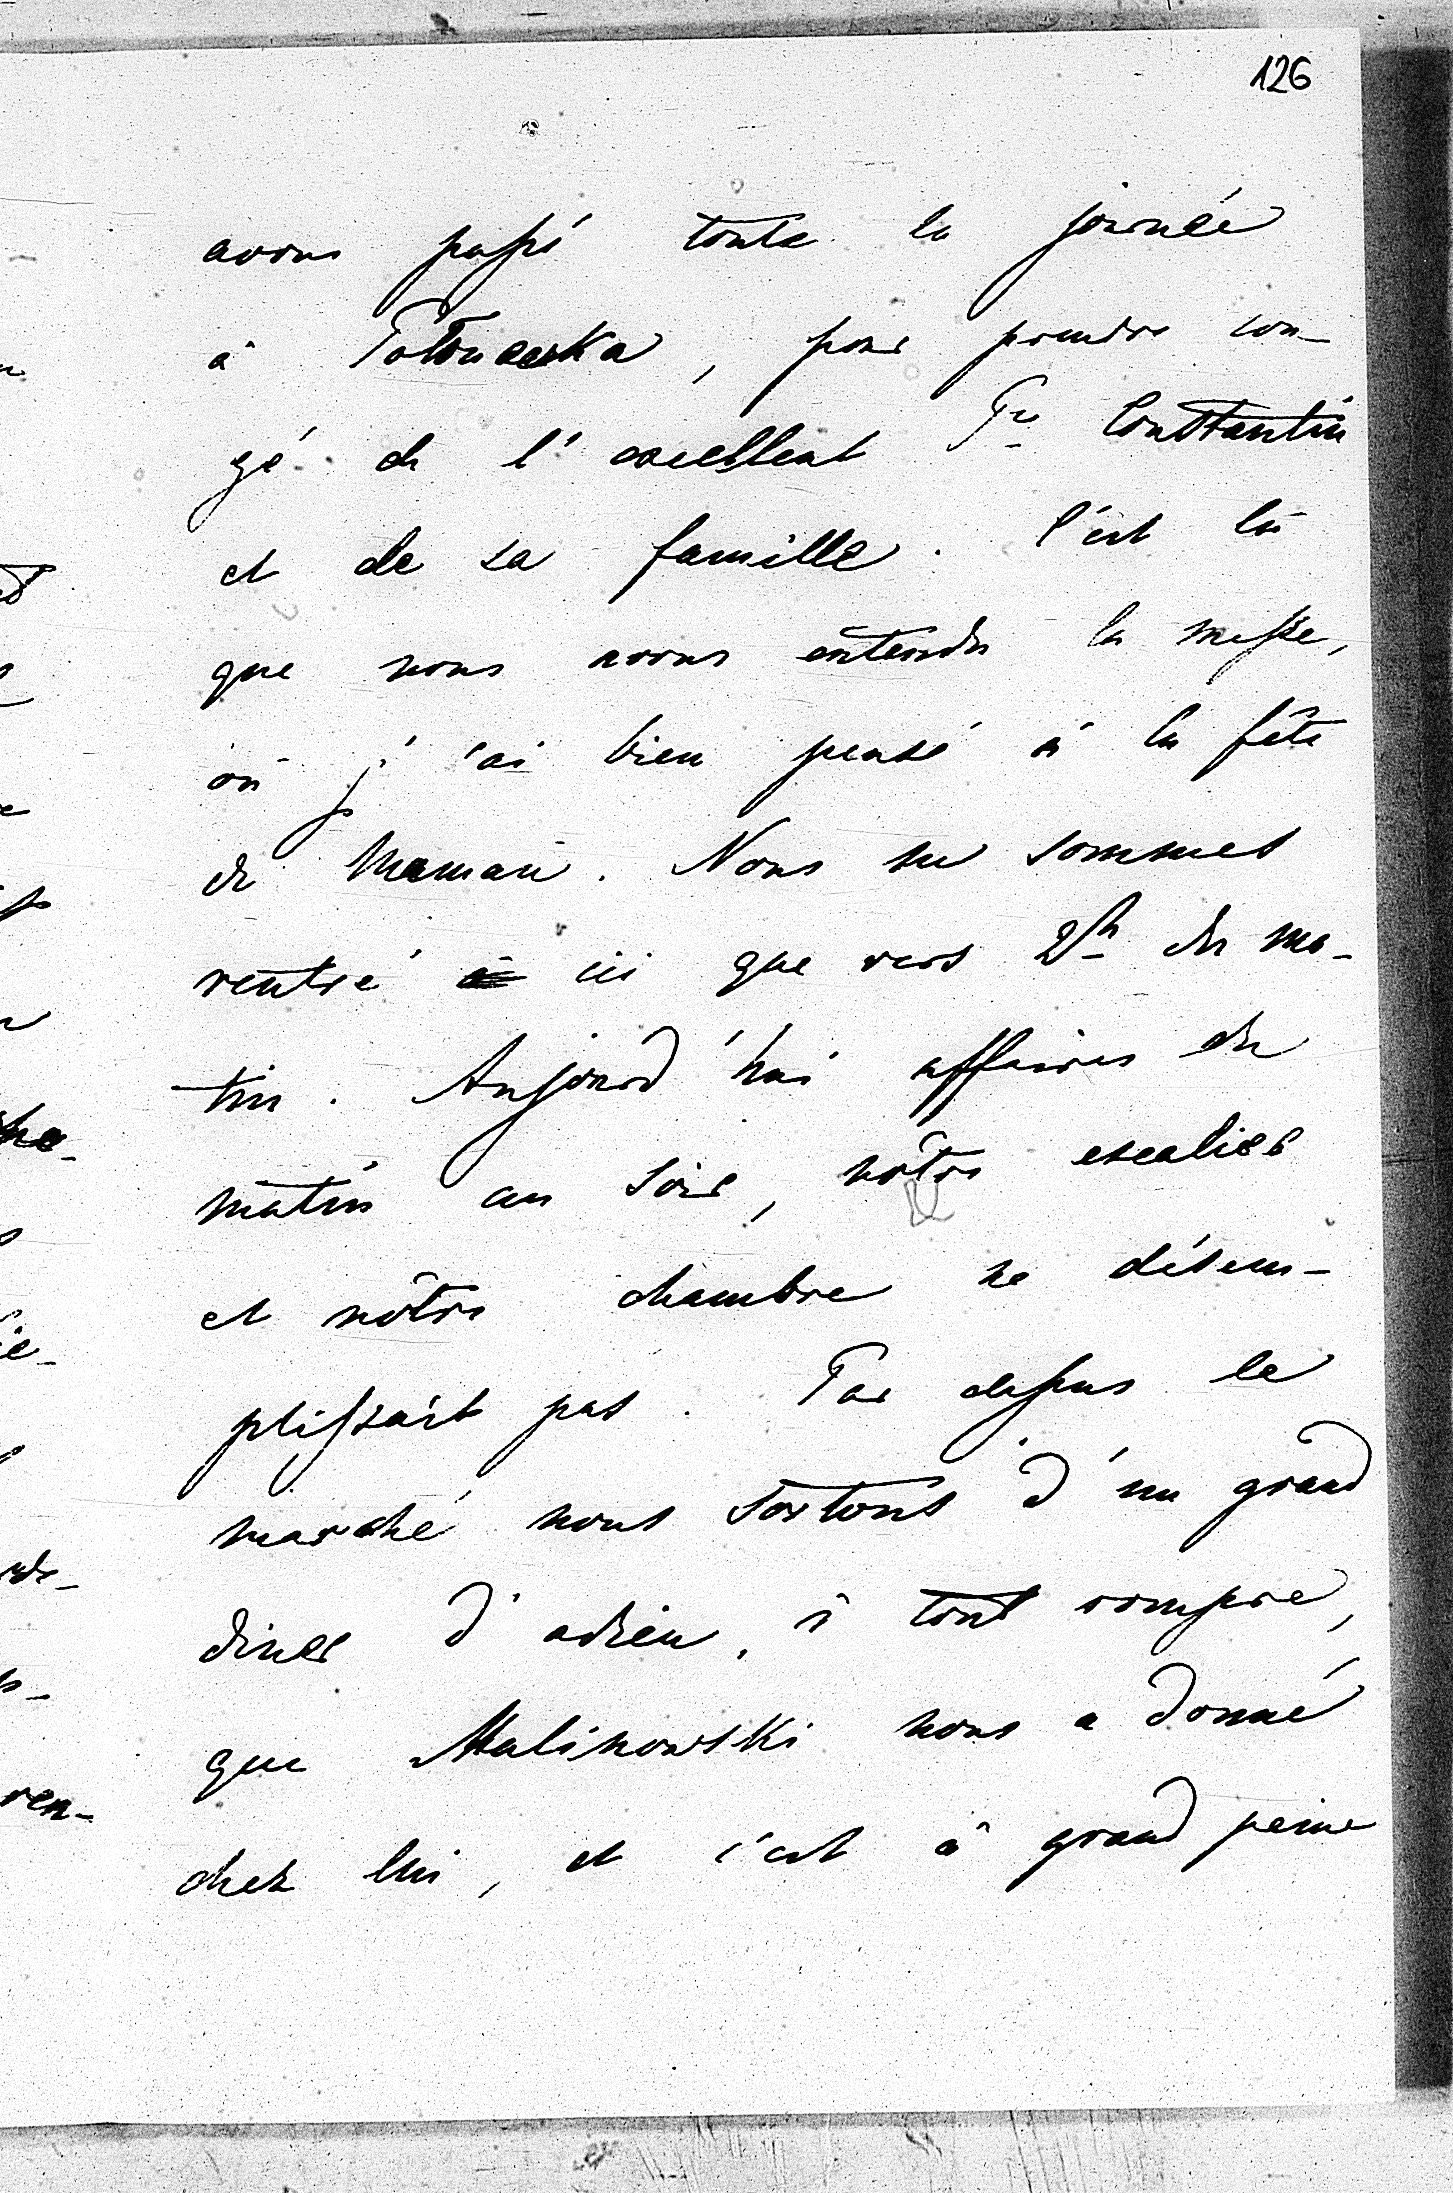 126
avons passé toute la journée
à , pour prendre con-
gé de l'excellent Pce Constantin
et de sa famille. C'est là
que nous avons entendu la messe,
où j'ai bien pensé à la fête
de Maman. Nous ne sommes
rentré ici que vers 2h du ma-
tin. Aujourd'hui affaires du
matin au soir, nôtre escalier
et nôtre chambre ne désem-
plissait pas. Par dessus le
marché nous sortons d'un grand
diner d'adieu, à tout rompre,
que Malinowski nous a donné
chez lui, et c'est à grand peine